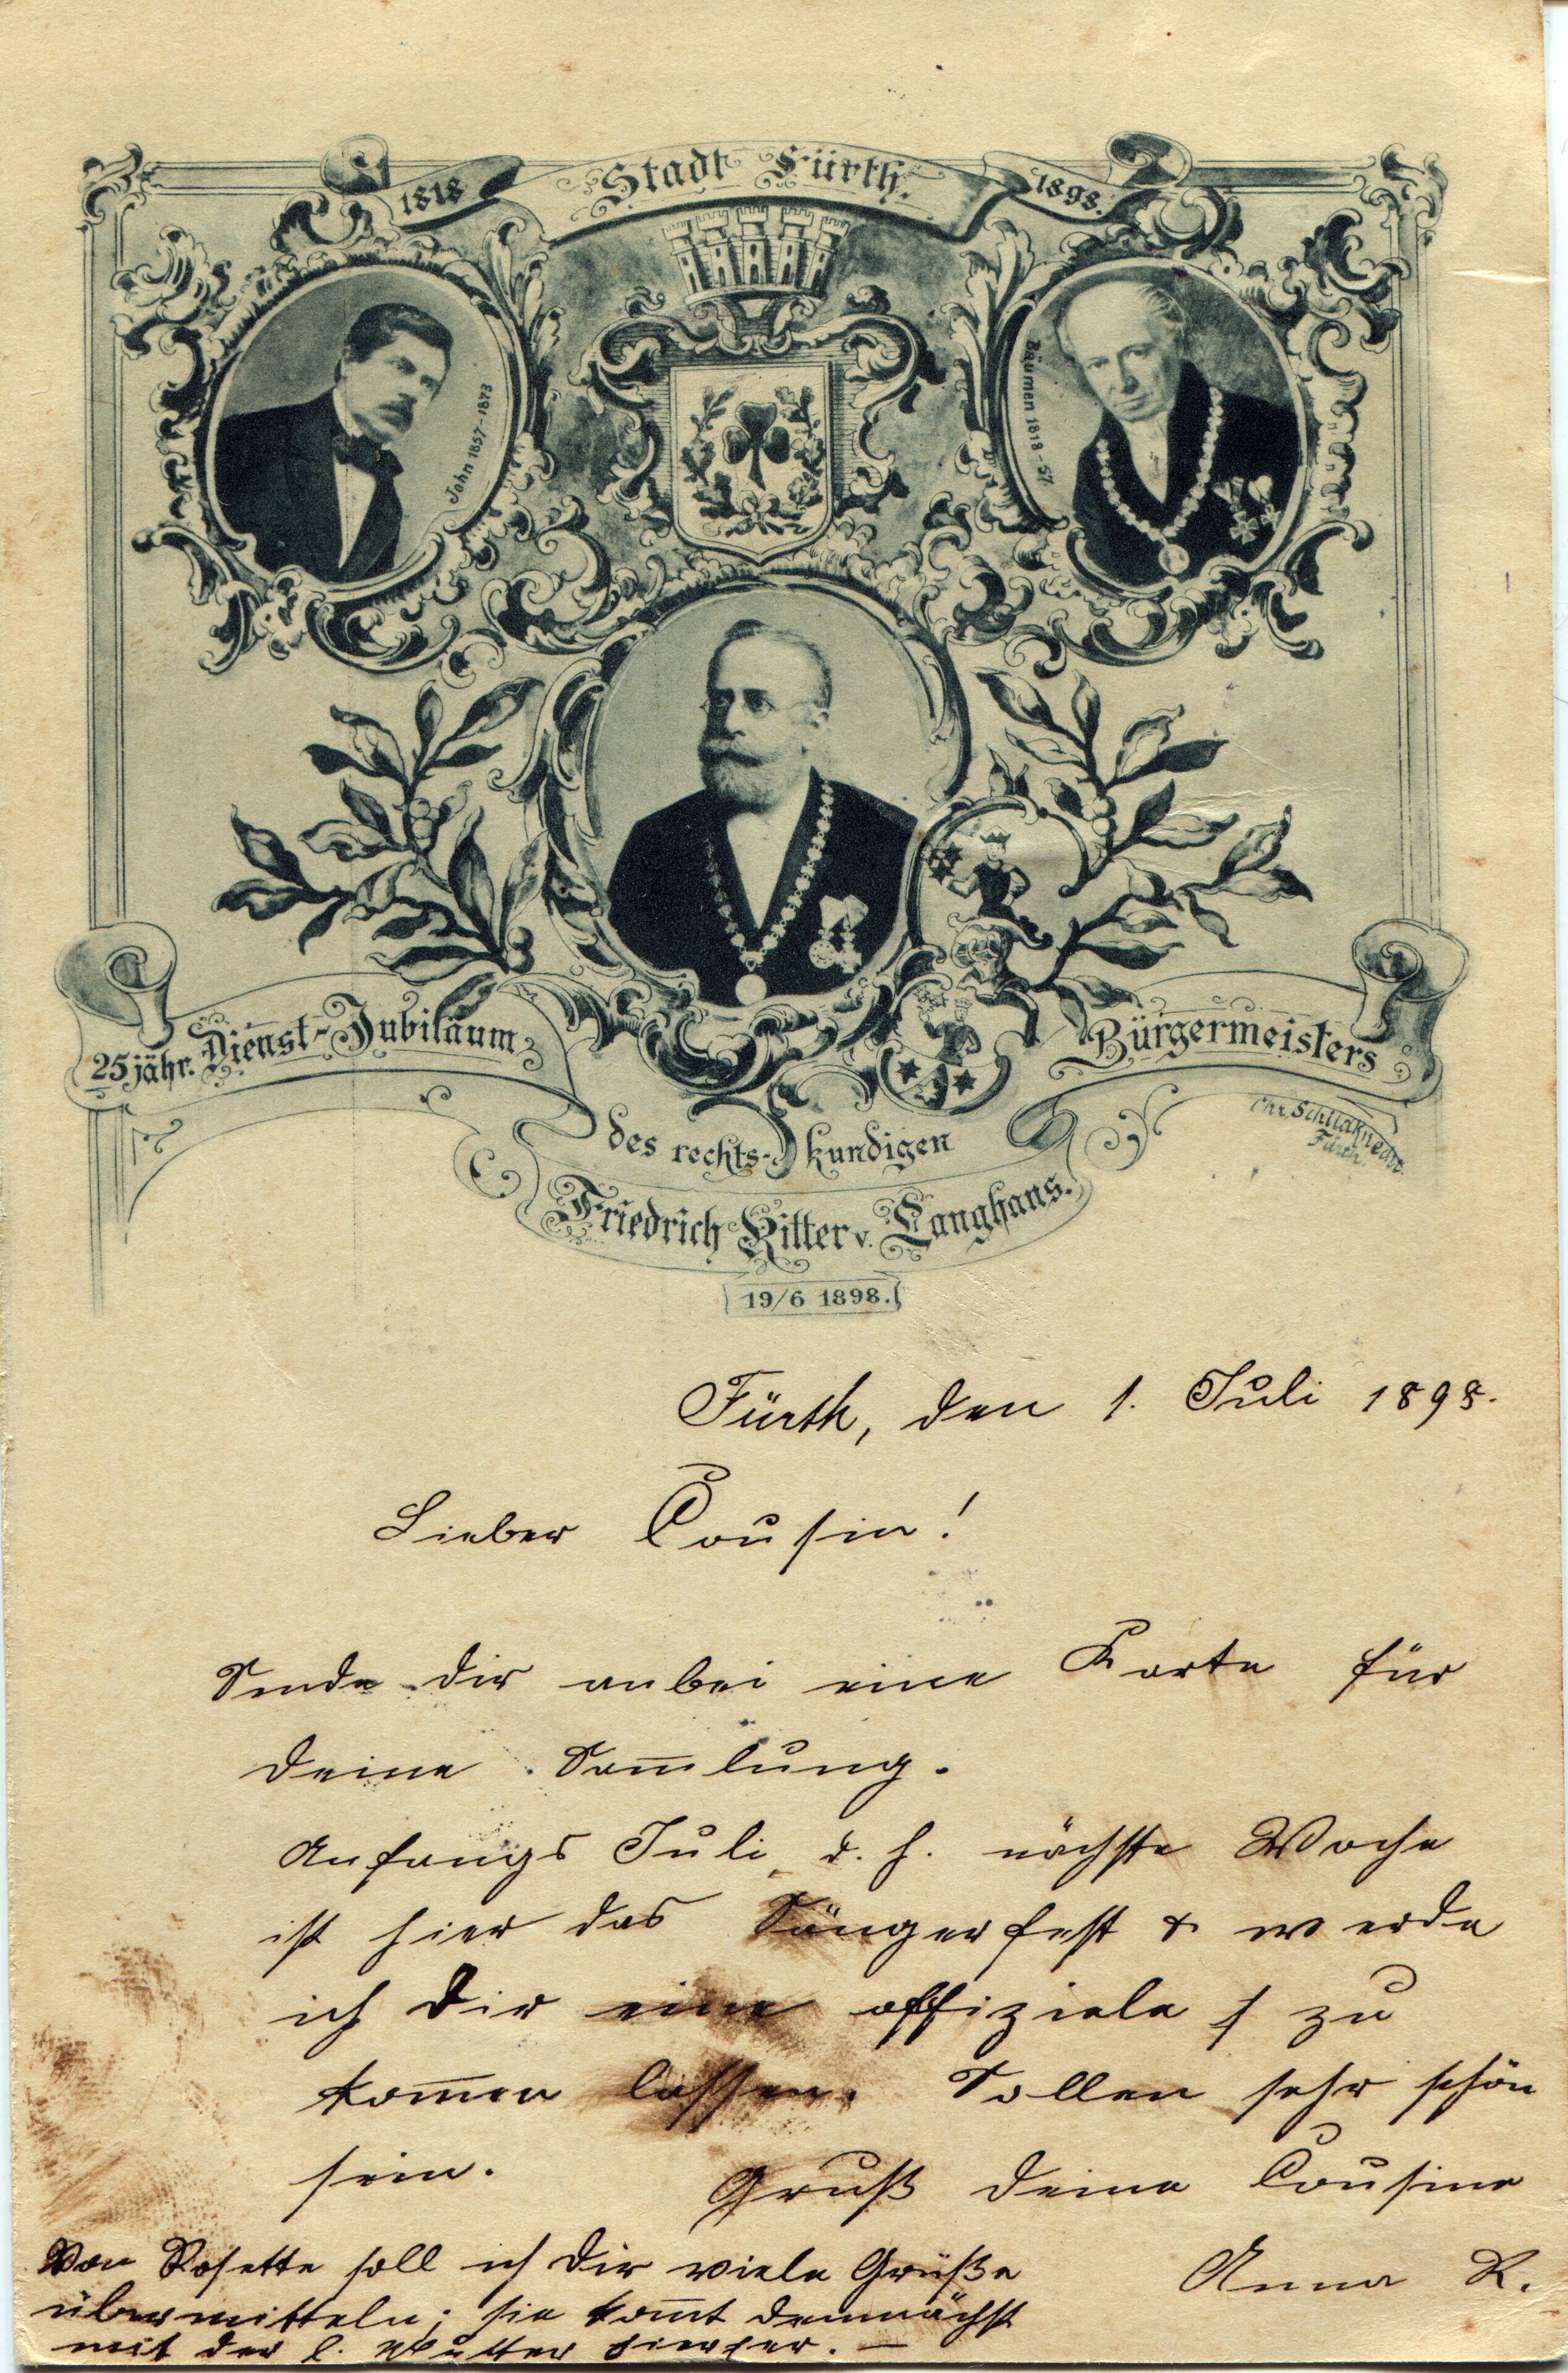 1818 Stadt Fürth. 1898.
John 1857-1873
Bäumen 1818-57.
25jähr. Dienst-Jubiläum
des rechts-kundigen
Bürgermeisters
Friedrich Ritter v. Langhans.
19/6 1898.
Fürth.
Fürth, den 1. Juli 1898.
Lieber Cousin!
Sende dir anbei eine Karte für
deine Sam̅lung.
Anfangs Juli, d. h. nächste Woche
ist hier das Sängerfest & werde
ich Dir eine offiziele zu
kom̅en lassen. Sollen sehr schön
sein.
Gruß deine Cousine
Anna R.
Von Rosette soll ich dir viele Grüße
übermitteln; sie kom̅t demnächst
mit der l. Mutter hierher. —